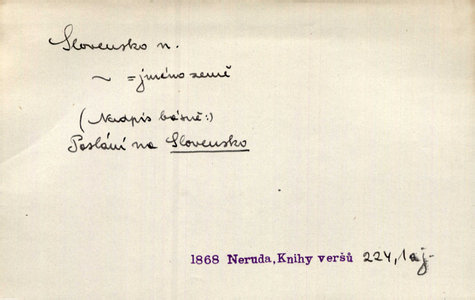 Slovensko n.
~ = jméno země
(Nadpis básně:)
Poslání na Slovensko
1868 Neruda, Knihy veršů 224, 1 aj.